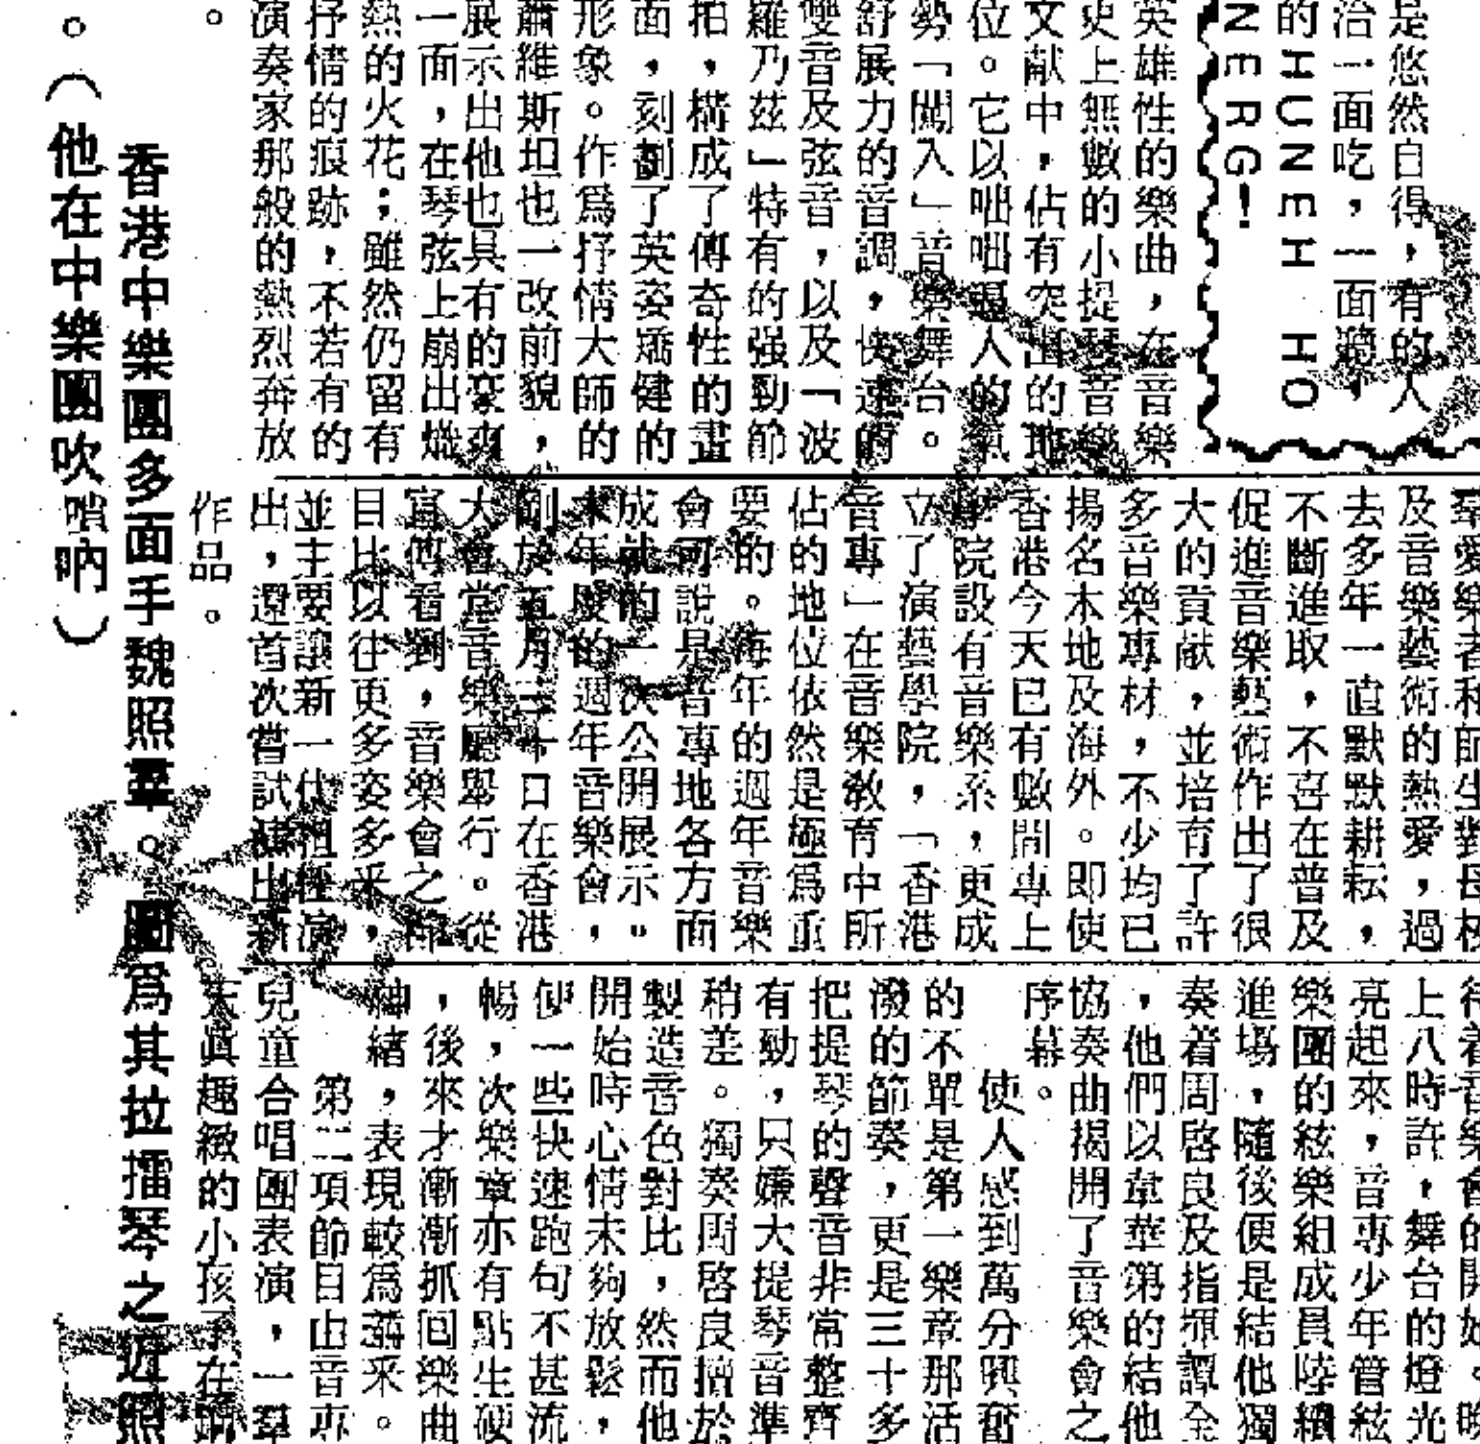 是悠然自得，有的人
治一面吃，一面聽，
的HUNEH HO
NERG！
英雄性的樂曲，在音樂
史上無數的小提琴音樂
文献中，佔有突出的地
位。它以咄咄逼人的氣
勢「闖入」音樂舞台。
舒展力的音調，快速的
雙音及弦音，以及「波
羅乃兹」特有的强勁節
拍，構成了傅奇性的畫
面，刻劃了英姿矯健的
形象。作爲抒情大師的
蕭維斯坦也一改前貌，
展示出他也具有的豪爽
一面，在琴弦上崩出熾
熱的火花；雖然仍留有
抒情的痕跡，不若有的
演奏家那般的熱烈奔放
。
羣愛樂者和師生對母校
及音樂藝術的熱愛，過
去多年一直默默耕耘，
不斷進取，不喜在普及
促進音樂藝術作出了很
大的貢献，並培育了許
多音樂專材，不少均已
揚名本地及海外。即使
香港今天已有數間專上
學院設有音樂系，更成
立了演藝學院，「香港
音專」在音樂教育中所
佔的地位依然是極爲重
要的。每年的週年音樂
會可說是音專地各方面
成就的一次公開展示。
本年度的週年音樂會，
剛於五月三十日在香港
大會堂音樂廳舉行。從
宣傳看到，音樂會之節
目比以往更多姿多釆，
並主要讓新一代演
出，還首次嘗試演出新
作品。
待着音樂會的開始。晚
上八時許，舞台的燈光
亮起來，音專少年管絃
樂團的絃樂組成員陸續
進場，隨後便是結他獨
奏着周啓良及指揮譚全
，他們以韋華第的結他
協奏曲揭開了音樂會之
序幕。
使人感到萬分興奮
的不單是第一樂章那活
潑的節奏，更是三十多
把提琴的聲音非常整齊
有勁，只嫌大提琴音準
稍差。獨奏周啓良擅於
製造音色對比，然而他
開始時心情未夠放鬆，
使一些快速跑句不甚流
暢，次樂章亦有點生硬
，後來才漸漸抓回樂曲
神緒，表現較爲釆。
第二項節目由音專
兒童合唱團表演，一羣
天眞趣緻的小孩子在
香港中樂團多面手魏照羣。圖爲其拉擂琴之近照
。（他在中樂團吹嗩吶）